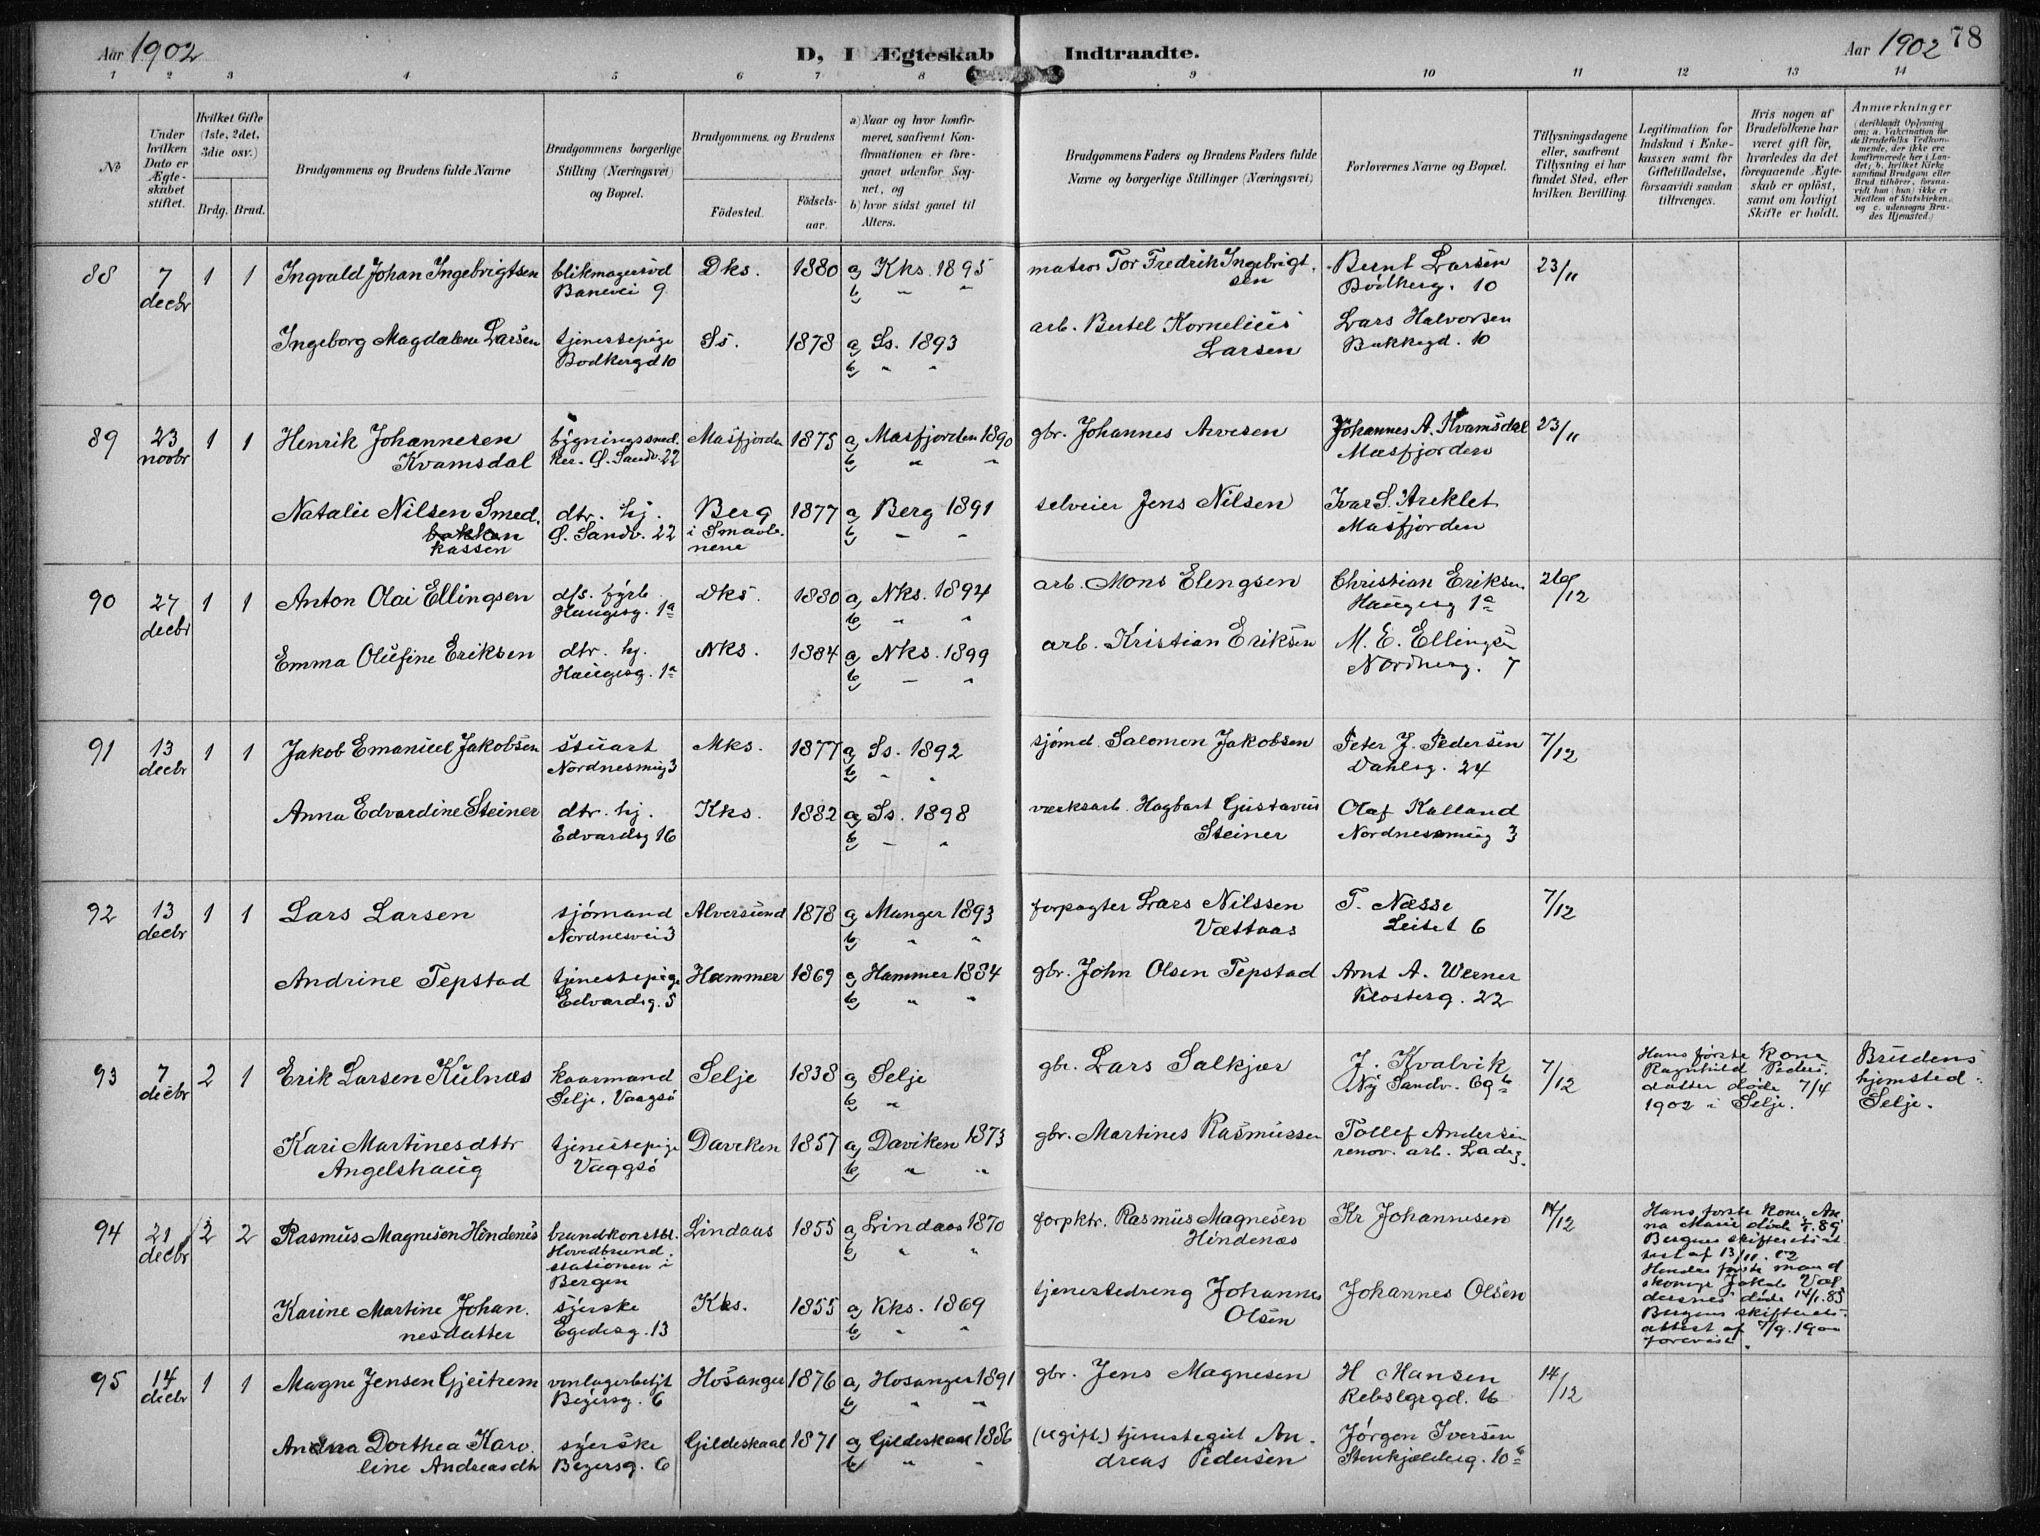 Aar 1902
D, I Ægteskab Indtraadte.
Aar 1902 78
1 2 3 4 5 6 7 8 9 10 11 12 13 14
No
Under hvilken Dato er Ægteskabet stiftet.
Hvilket Gifte (1ste, 2det, 3die osv.)
Brdg. Brud.
Brudgommens og Brudens fulde Navne
Brudgommens borgerlige Stilling (Næringsvei) og Bopæl.
Brudgommens. og Brudens
Födested.
Födsels-aar.
a) Naar og hvor konfirmeret, saafremt Konfirmationen er foregaaet udenfor Sognet, og
b) hvor sidst gaaet til Alters.
Brudgommens Faders og Brudens Faders fulde Navne og borgerlige Stillinger (Næringsvei)
Forlovernes Navne og Bopæl.
Tillysningsdagene eller, saafremt Tillysning ei har fundet Sted, efter hvilken Bevilling.
Legitimation for Indskud i Enkekassen samt for Giftetilladelse, forsaavidt saadan tiltrænges.
Hvis nogen af Brudefolkene har været gift för, hvorledes da det foregaaende Ægteskab er oplöst, samt om lovligt Skifte er holdt.
Anmærkninger (deriblandt Oplysning om: a. Vakcination for de Brudefolks Vedkommende, der ikke ere konfirmerede her i Landet; b. hvilket Kirkesamfund Brudgom eller Brud tilhörer, forsaavidt han (hun) ikke er Medlem af Statskirken, og c. udensogns Brudes Hjemsted.)
88 7 decbr 1 1 Ingvald Johan Ingebrigtsen blikmagersvd Banevei 9 Dks. 1880 a) Kks. 1895 b) " " matros Tor Fredrik Ingebrigtsen Bernt Larsen Bødkerg. 10 23/11
Ingeborg Magdalene Larsen tjenestepige Bodkergd 10 Ss. 1878 a) Ss. 1893 b) " " arb. Bertel Kornelius Larsen Lars Halvorsen Bakkegd. 10
89 23 novbr 1 1 Henrik Johannesen Kvamsdal bygningssned.ker. Ø. Sandv. 22 Masfjorden 1875 a) Masfjorden 1890 b) " " gbr. Johannes Arvesen Johannes A. Kvamsdal Masfjorden 23/11
Natalie Nilsen Smed.bakken kassen dtr. hj. Ø. Sandv. 22 Berg i Smaalenene 1877 a) Berg 1891 b) " " selveier Jens Nilsen Ivar S. Areklet Masfjorden
90 27 decbr 1 1 Anton Olai Ellingsen d/s. fyrb. Haugesg. 1a Dks. 1880 a) Nks. 1894 b) " " arb. Mons Elengsen Christian Eriksen Haugesg 1a 26/12
Emma Olufine Eriksen dtr. hj. Haugesg. 1a Nks. 1884 a) Nks. 1899 b) " " arb. Kristian Eriksen M. E. Ellingse Nordnesg. 7
91 13 decbr 1 1 Jakob Emanuel Jakobsen stuart Nordnesmug 3 Mks. 1877 a) Ss. 1892 b) " " sjømd. Salomon Jakobsen Peter J. Pedersen Dahlsg. 24 7/12
Anna Edvardine Steiner dtr. hj. Edvardsg 16 Kks. 1882 a) Ss. 1898 b) " " værksarb. Hagbart Gustavus Steiner Olaf Kalland Nordnesmug 3
92 13 decbr 1 1 Lars Larsen sjømand Nordnesvei 3 Alversund 1878 a) Manger 1893 b) " " forpagter Lars Nilssen Vættaas T. Næsse Leitet 6 7/12
Andrine Tepstad tjenestepige Edvardsg. 5 Hammer 1869 a) Hammer 1884 b) " " gbr. John Olsen Tepstad Arnt A. Werner Klosterg. 22
93 7 decbr 2 1 Erik Larsen Kulnæs kaarmand Selje, Vaagsö Selje 1838 a) Selje b) " gbr. Lars Salkjær J. Kvalvik Ny Sandv. 69b 7/12 Hans første kone Ragnhild Pedersdatter døde 7/4 1902 i Selje. Brudens hjemsted: Selje.
Kari Martinesdttr Angelshaug tjenestepige Vaagsö Daviken 1857 a) Daviken 1873 b) " " gbr. Martines Rasmussen Tollef Andersen renov. arb. Ladeg.
94 21 decbr 2 2 Rasmus Magnesen Hindenes brandkonstbl. Hovedbrandstationen i Bergen Lindaas 1855 a) Lindaas 1870 b) " " forpktr. Rasmus Magnesen Hindenæs Kr Johannesen 14/12 Hans første kone, Anna Marie døde 89 Bergens skifteretsattest af 13/11. 02 Hendes første mand skomgr Jakob døde 14/1. 85 Bergens skifteretsattest af 7/9. 1900 forevist.
Karine Martine Johannesdatter syerske Egedesg. 13 Kks. 1855 a) Kks. 1869 b) " " tjenestedreng Johannes Olsen Johannes Olsen
95 14 decbr 1 1 Magne Jensen Gjeitrem vinlagerbetjt Beyersg. 6 Hosanger 1876 a) Hosanger 1891 b) " " gbr. Jens Magnesen H Hansen Rebslgrgd. 16 14/12
Anna Dorthea Karoline Andreasdtr syerske Beyersg. 6 Gildeskaal 1871 a) Gildeskaal 1886 b) " " (ugift) tjenestegut Andreas Pedersen Jørgen Iversen Stenkjelderg. 10b